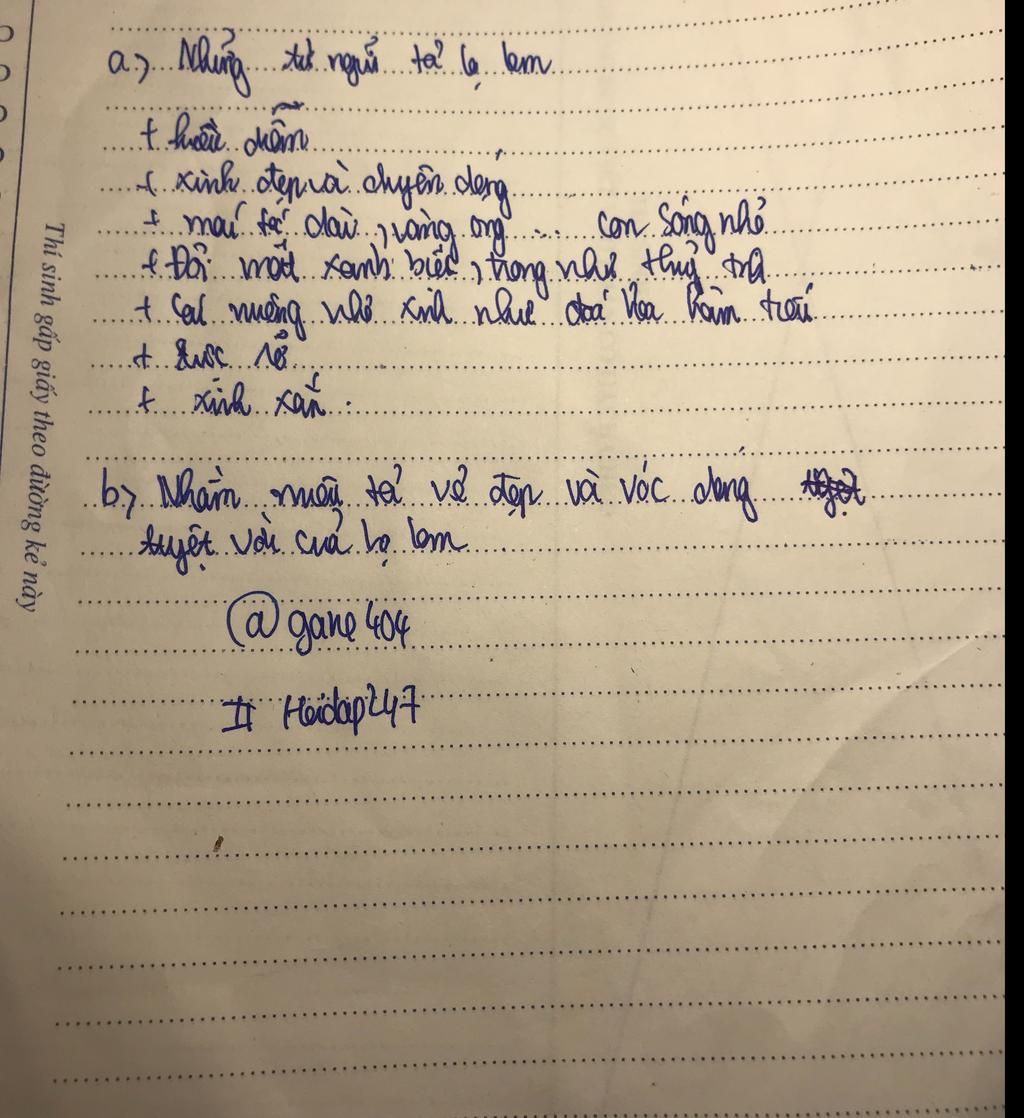 a) Những từ ngữ tả lọ lem
+ kiều diễm
+ xinh đẹp và duyên dáng
+ mái tóc dài, vàng óng ... con sóng nhỏ
+ Đôi mắt xanh biếc, trong như thuỷ
+ nhỏ xinh như đoá hoa hàm tiếu
+ rực rỡ
+ xinh xắn.
b) Nhằm miêu tả vẻ đẹp và vóc dáng
tuyệt vời của lọ lem
@gane404
II Hoidap247
Thí sinh gấp giấy theo đường kẻ này